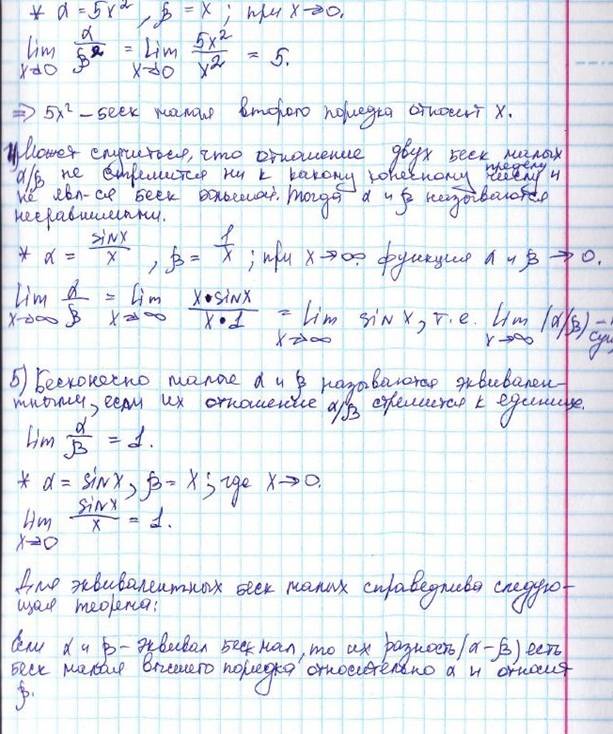 * α = 5x², β = x; при x→0.
lim x→0 α/β² = lim x→0 5x²/x² = 5.
=> 5x² – беск малая второго порядка относит x.
4) Может случиться, что отношение двух беск малых
α/β не стремится ни к какому конечному пределу числу и
не явл-ся беск большой. Тогда α и β называются
несравнимыми.
* α = sinx/x, β = 1/x; при x→∞ функция α и β → 0.
lim x→∞ α/β = lim x→∞ x•sinx/x•1 = lim x→∞ sinx, т.е. lim x→∞ (α/β) –
сущ
5) Бесконечно малые α и β называются эквивален-
тными, если их отношение α/β стремится к единице.
lim α/β = 1.
* α = sinx, β = x; где x→0.
lim x→0 sinx/x = 1.
Для эквивалентных беск малых справедлива следую-
щая теорема:
Если α и β – эквивал беск мал, то их разность (α-β) есть
беск малая высшего порядка относительно α и относит
β.